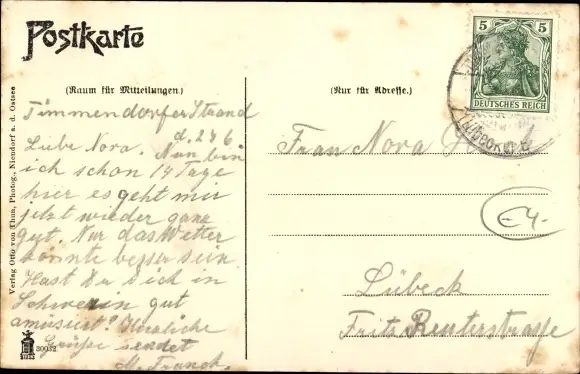 Postkarte
(Raum für Mitteilungen.)
Timmendorfer Strand
d. 2 4 6
Liebe Nora. Nun bin
ich schon 14 Tage
hier es geht mir
jetzt wieder ganz
gut. Nur das Wetter
könnte besser sein.
Hast Du Dich in
Schwerin gut
amüsiert? Herzliche
Grüße sendet
M. Franck.
(Nur für Adresse.)
5 5
DEUTSCHES REICH
Frau Nora
€ 4.-
Lübeck
Fritz Reuterstrasse
Verlag Otto von Thun, Photog., Niendorf a. d. Ostsee
30032